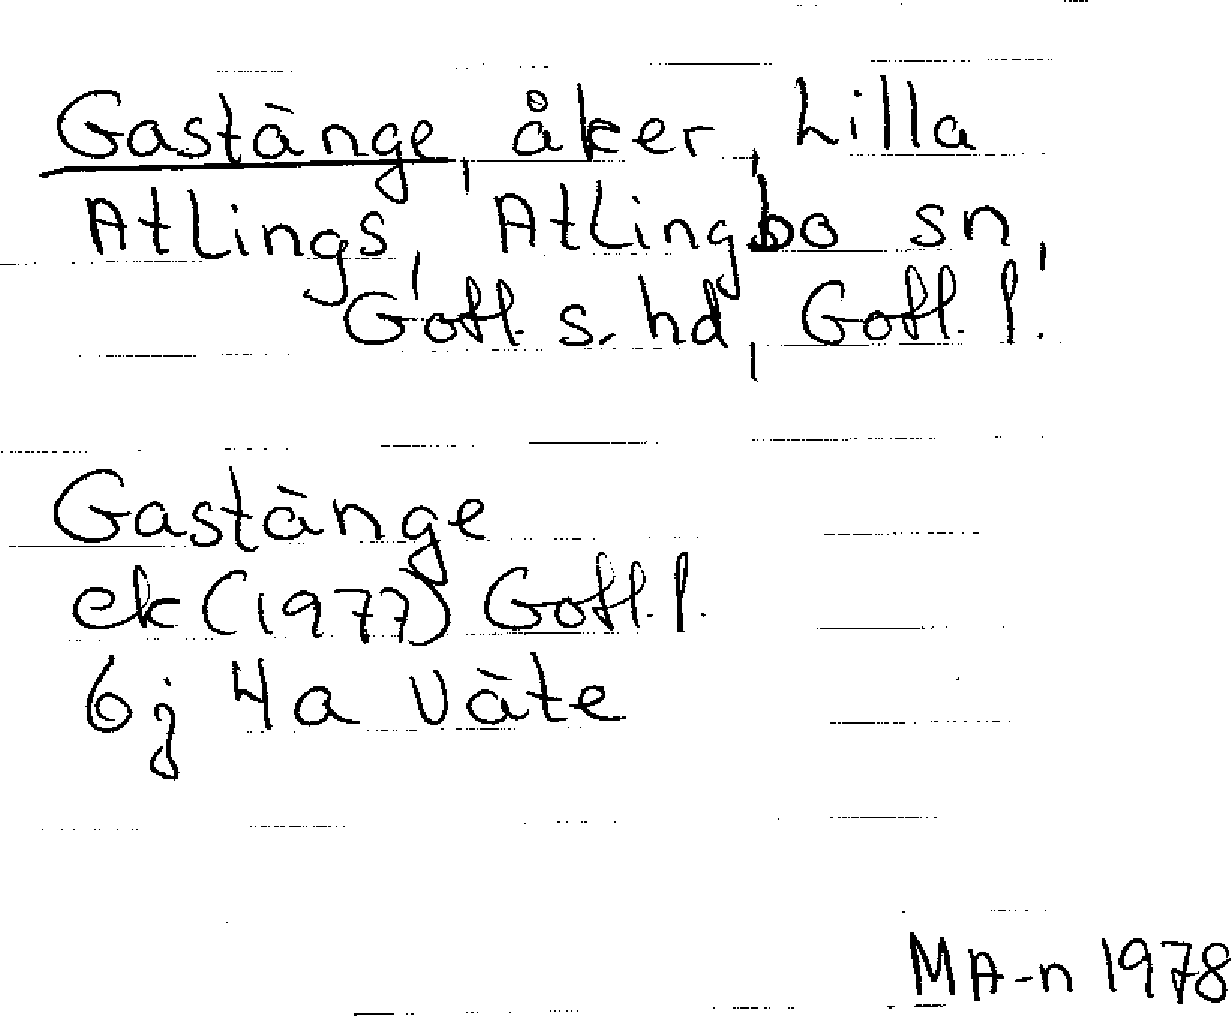 Gastänge, åker, Lilla
Atlings, Atlingbo sn,
Gotl. s. hd, Gotl. l.
Gastänge
ek (1977) Gotl. l.
6j 4a Väte
MA-n 1978